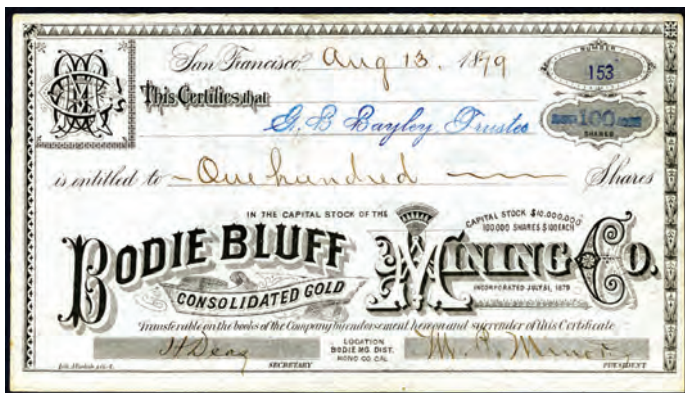 San Francisco, Aug 13. 1879
NUMBER
153
This Certifies that
G. B Bayley Trustee
100
SHARES
is entitled to One hundred Shares
IN THE CAPITAL STOCK OF THE
CAPITAL STOCK $10.000,000
100.000 SHARES $100 EACH
BODIE BLUFF
CONSOLIDATED GOLD
MINING CO.
INCORPORATED JULY 31, 1879
Transferable on the books of the Company by endorsement hereon and surrender of this Certificate
LOCATION
BODIE MG. DIST.
MONO CO. CAL.
SECRETARY
PRESIDENT